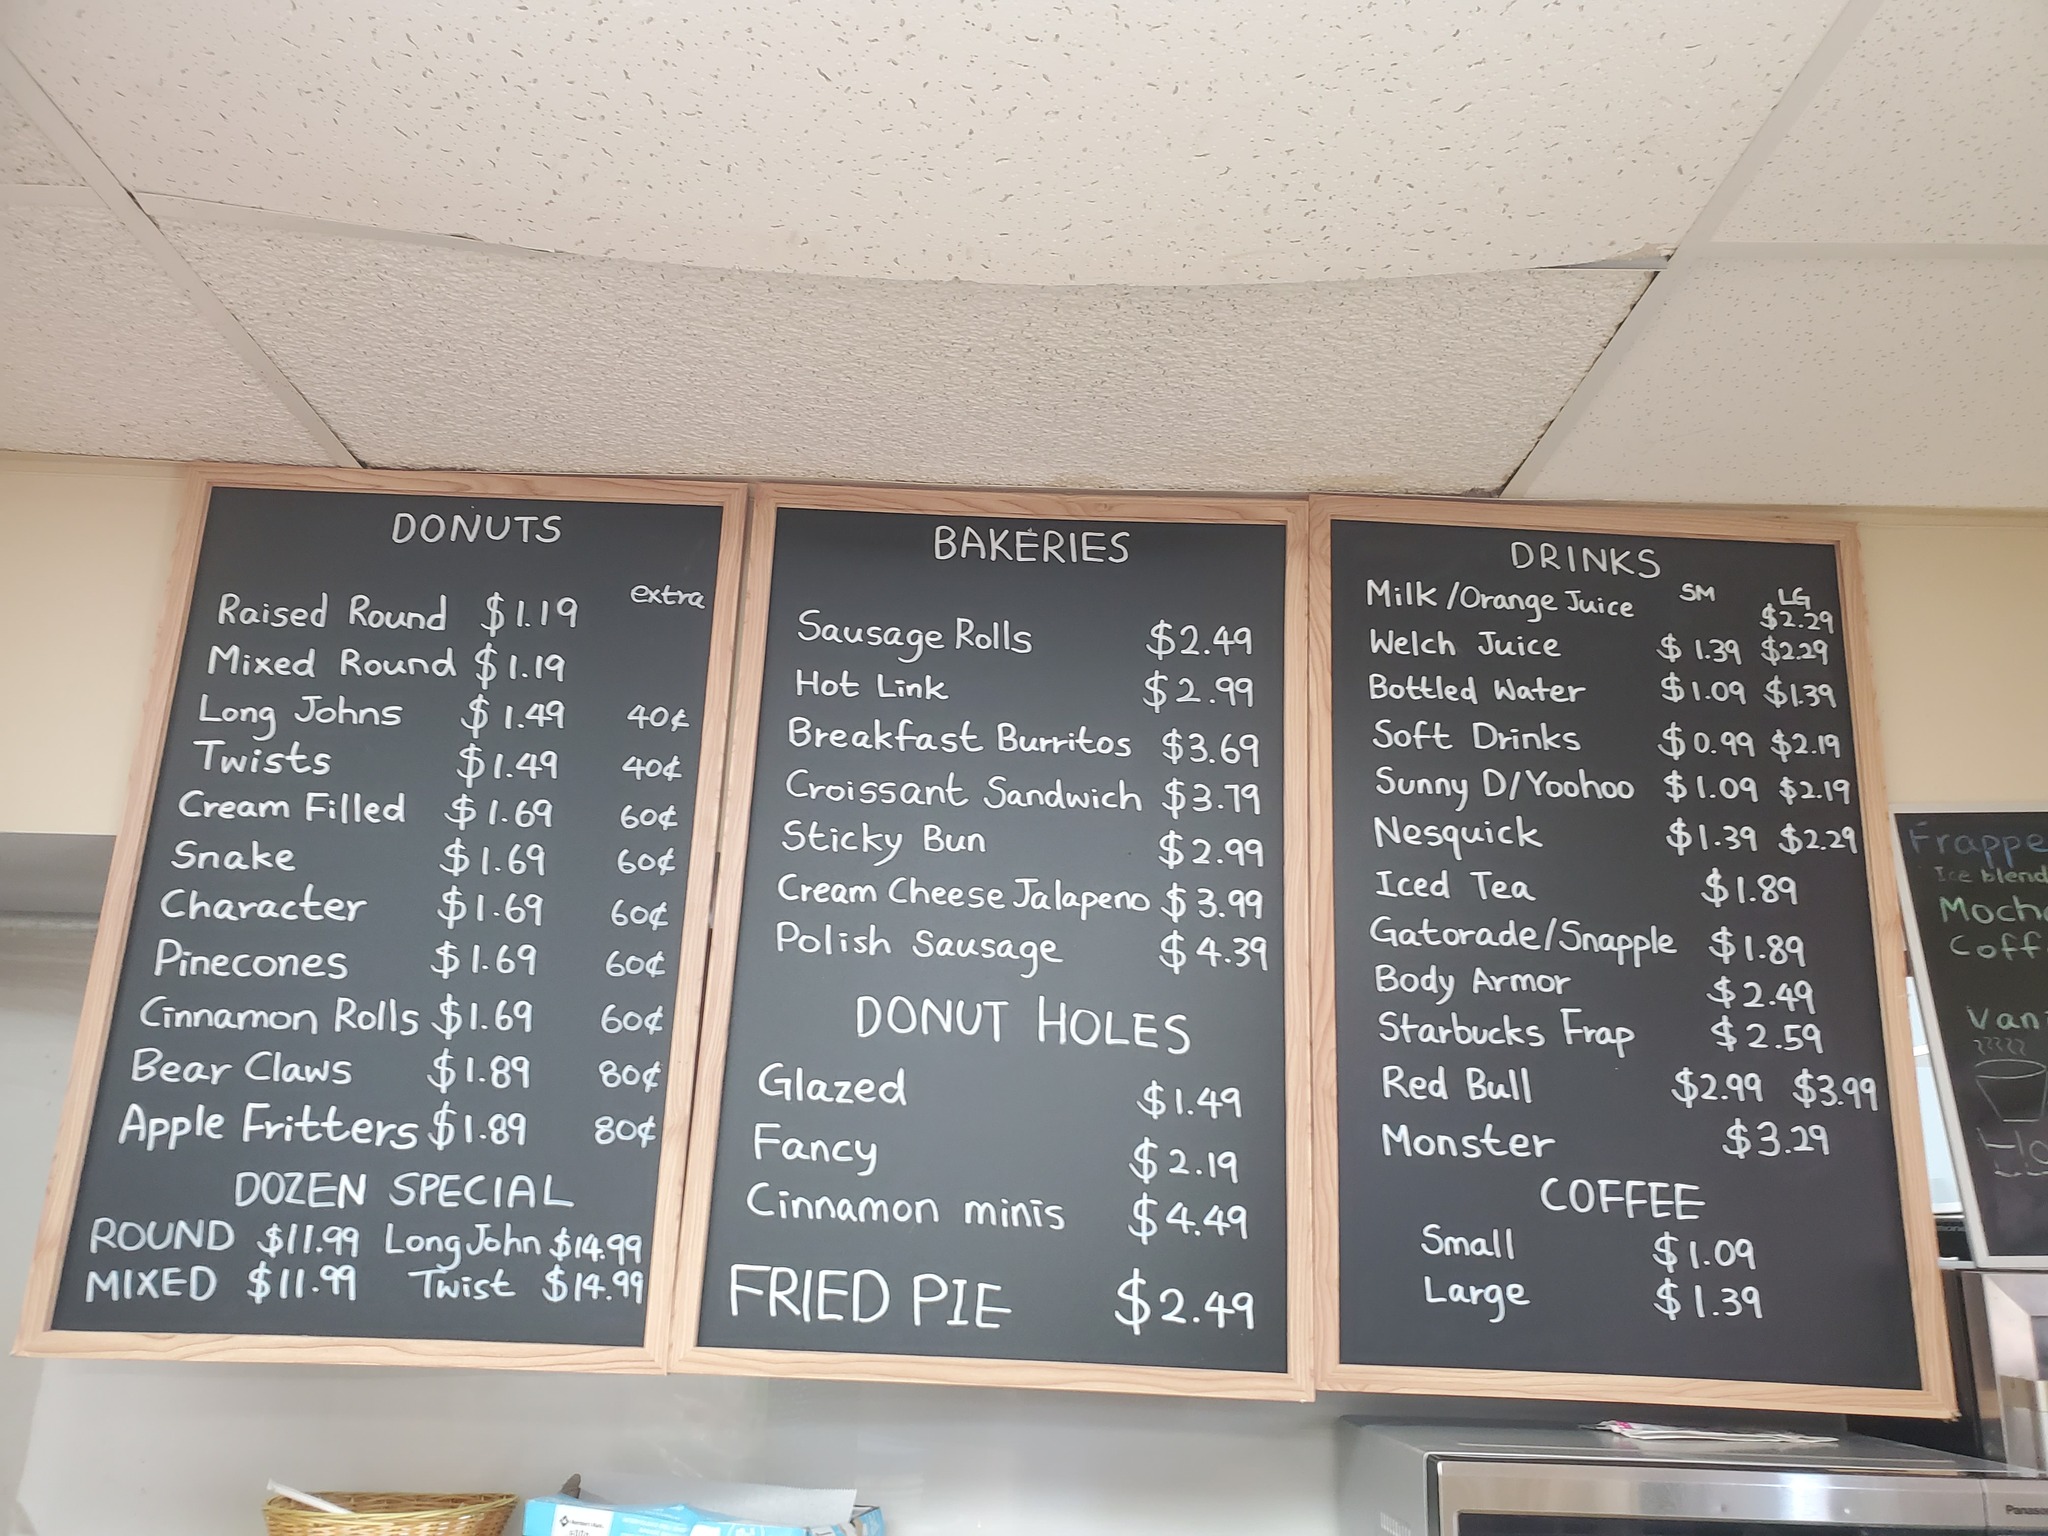 DONUTS
extra
Raised Round $1.19
Mixed Round $1.19
Long Johns $1.49 40¢
Twists $1.49 40¢
Cream Filled $1.69 60¢
Snake $1.69 60¢
Character $1.69 60¢
Pinecones $1.69 60¢
Cinnamon Rolls $1.69 60¢
Bear Claws $1.89 80¢
Apple Fritters $1.89 80¢
DOZEN SPECIAL
ROUND $11.99 Long John $14.99
MIXED $11.99 Twist $14.99
BAKERIES
Sausage Rolls $2.49
Hot Link $2.99
Breakfast Burritos $3.69
Croissant Sandwich $3.79
Sticky Bun $2.99
Cream Cheese Jalapeno $3.99
Polish Sausage $4.39
DONUT HOLES
Glazed $1.49
Fancy $2.19
Cinnamon minis $4.49
FRIED PIE $2.49
DRINKS
SM LG
Milk/Orange Juice $2.29
Welch Juice $1.39 $2.29
Bottled Water $1.09 $1.39
Soft Drinks $0.99 $2.19
Sunny D/Yoohoo $1.09 $2.19
Nesquick $1.39 $2.29
Iced Tea $1.89
Gatorade/Snapple $1.89
Body Armor $2.49
Starbucks Frap $2.59
Red Bull $2.99 $3.99
Monster $3.29
COFFEE
Small $1.09
Large $1.39
Frappe
Ice blend
Moch
Coff
Van
Ho
Panaso